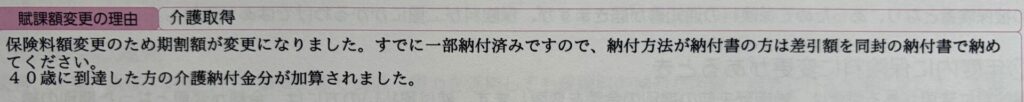 賦課額変更の理由 介護取得
保険料額変更のため期割額が変更になりました。すでに一部納付済みですので、納付方法が納付書の方は差引額を同封の納付書で納め
てください。
４０歳に到達した方の介護納付金分が加算されました。